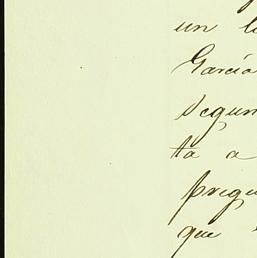 un l
García
segun
ta a
pregu
que